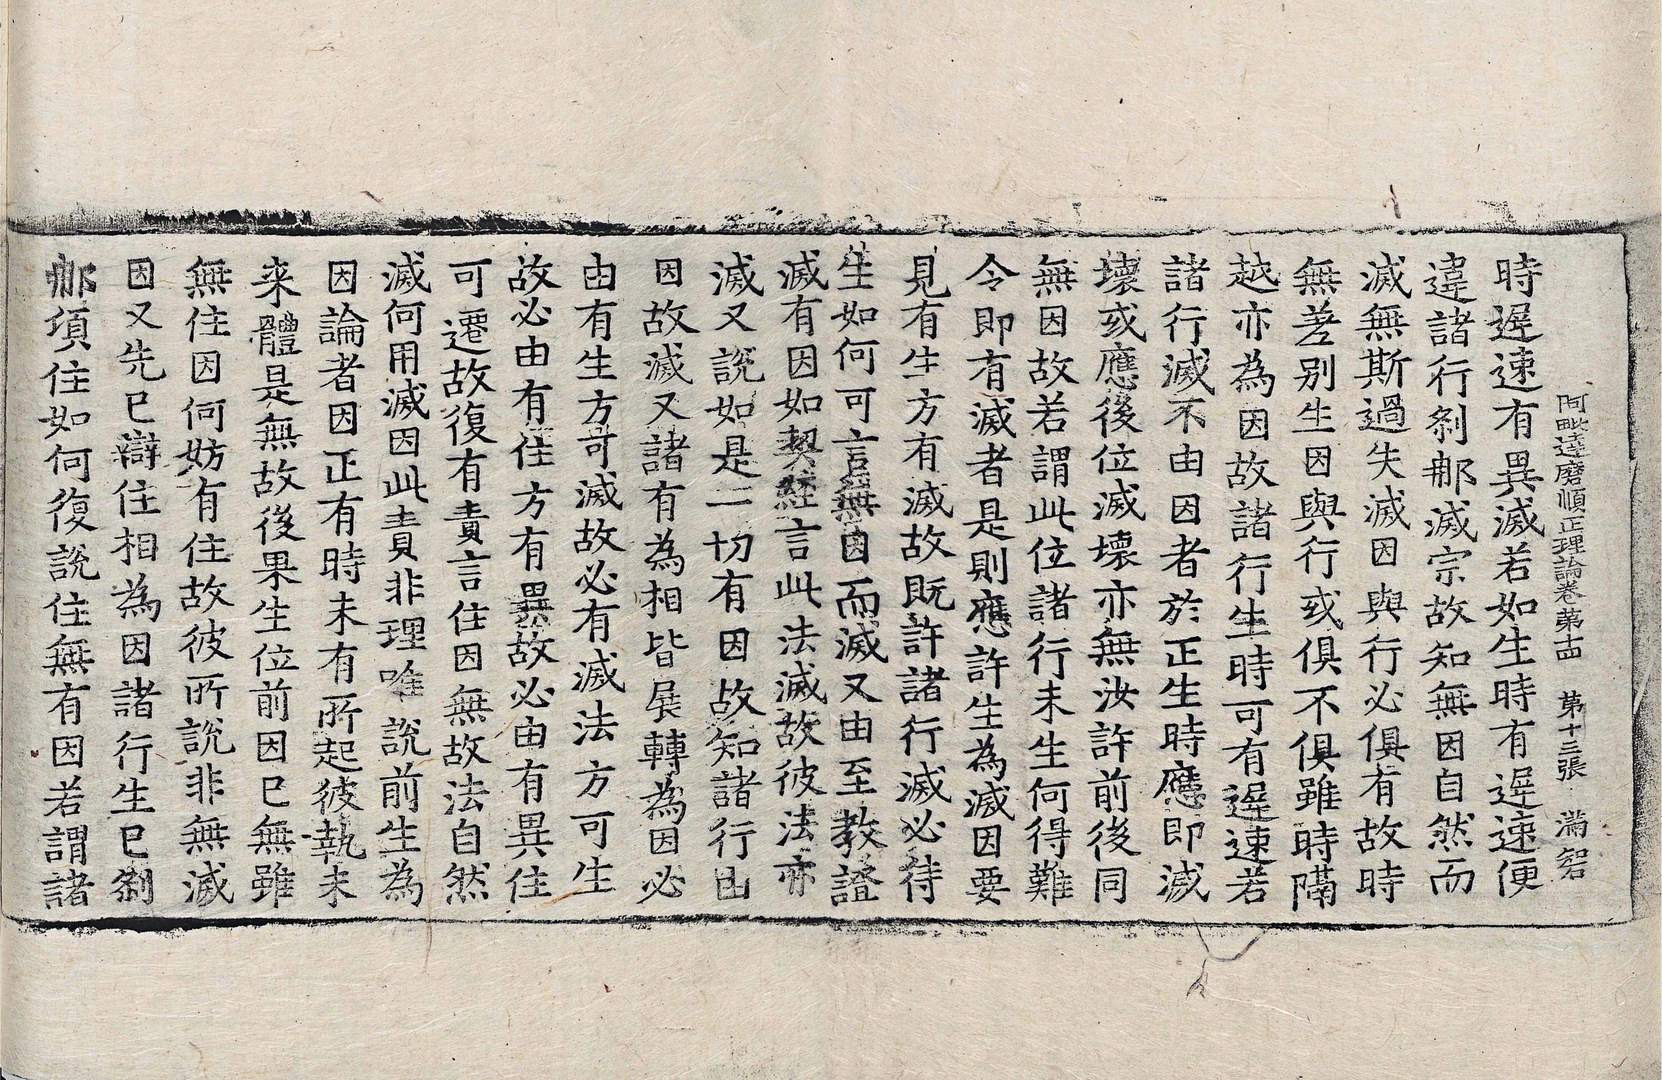 阿毗達磨順正理論卷第十四 第十三張 滿智
時遲速有異滅若如生時有遲速便
違諸行刹那滅宗故知無因自然而
滅無斯過失滅因與行必俱有故時
無差別生因與行或俱不俱雖時隔
越亦為因故諸行生時可有遲速若
諸行滅不由因者於正生時應即滅
壞或應後位滅壞亦無汝許前後同
無因故若謂此位諸行未生何得難
令即有滅者是則應許生為滅因要
見有生方有滅故既許諸行滅必待
生如何可言無因而滅又由至教證
滅有因如契經言此法滅故彼法亦
滅又說如是一切有因故知諸行由
因故滅又諸有為相皆展轉為因必
由有生方可滅故必有滅法方可生
故必由有住方有異故必由有異住
可遷故復有責言住因無故法自然
滅何用滅因此責非理唯說前生為
因論者因正有時未有所起彼執未
来體是無故後果生位前因已無雖
無住因何妨有住故彼所說非無滅
因又先已辯住相為因諸行生已刹
那頃住如何復說住無有因若謂諸